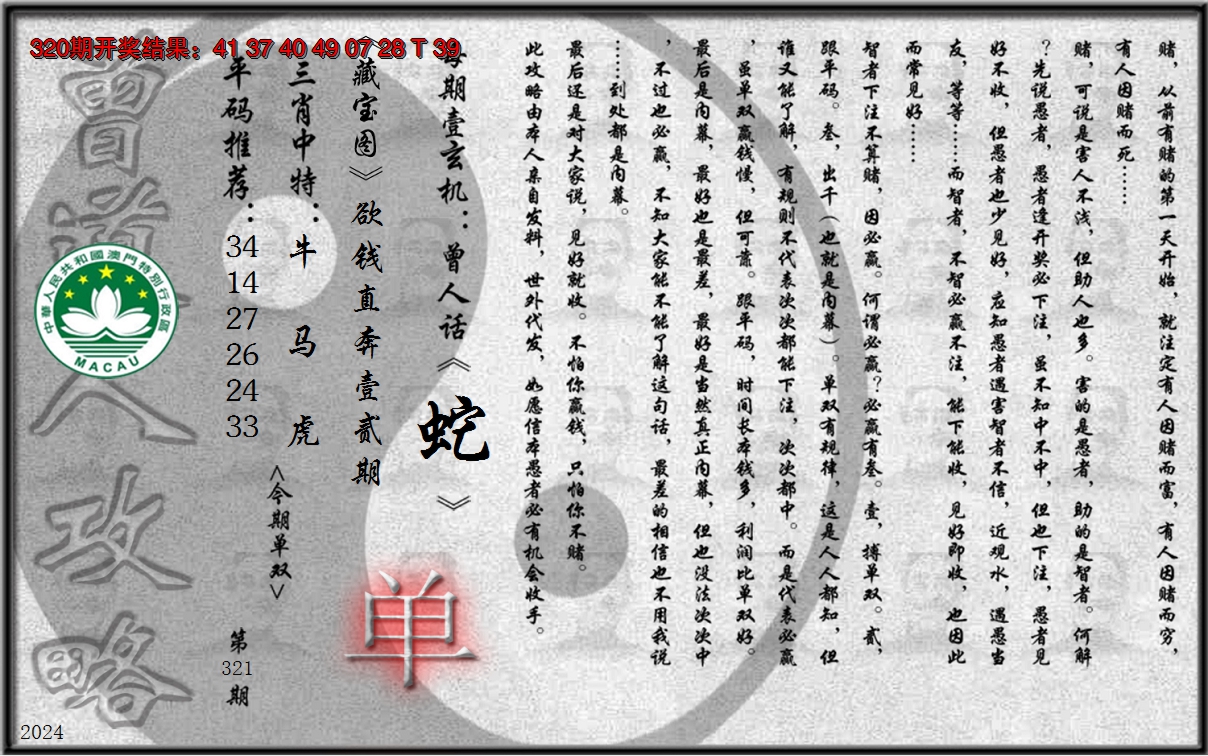 320期开奖结果：41 37 40 49 07 28 T 39
赌，从前有赌的第一天开始，就注定有人因赌而富，有人因赌而穷，
有人因赌而死……
赌，可说是害人不浅，但助人也多。害的是愚者，助的是智者。何解
？先说愚者，愚者逢开奖必下注，虽不知中不中，但也下注，愚者见
好不收，但愚者也少见好，应知愚者遇害智者不信，近观水，遇愚当
友，等等……而智者，不智必赢不注，能下能收，见好即收，也因此
而常见好……
智者下注不算赌，因必赢。何谓必赢？必赢有叁。壹，搏单双。贰，
跟平码。叁，出千（也就是内幕）。单双有规律，这是人人都知，但
谁又能了解，有规则不代表次次都能下注，次次都中。而是代表必赢
，虽单双赢钱慢，但可靠。跟平码，时间长本钱多，利润比单双好。
最后是内幕，最好也是最差，最好是当然真正内幕，但也没法次次中
，不过也必赢，不知大家能不能了解这句话，最差的相信也不用我说
……到处都是内幕。
最后还是对大家说，见好就收。不怕你赢钱，只怕你不赌。
此攻略由本人亲自发料，世外代发，如愿信本愚者必有机会收手。
每期壹玄机：曾人话《蛇》
《藏宝图》欲钱直奔壹贰期
单
三肖中特：牛 马 虎
<今期单双>
平码推荐：34 14 27 26 24 33
第321期
曾道人攻略
中華人民共和國澳門特別行政區
MACAU
2024